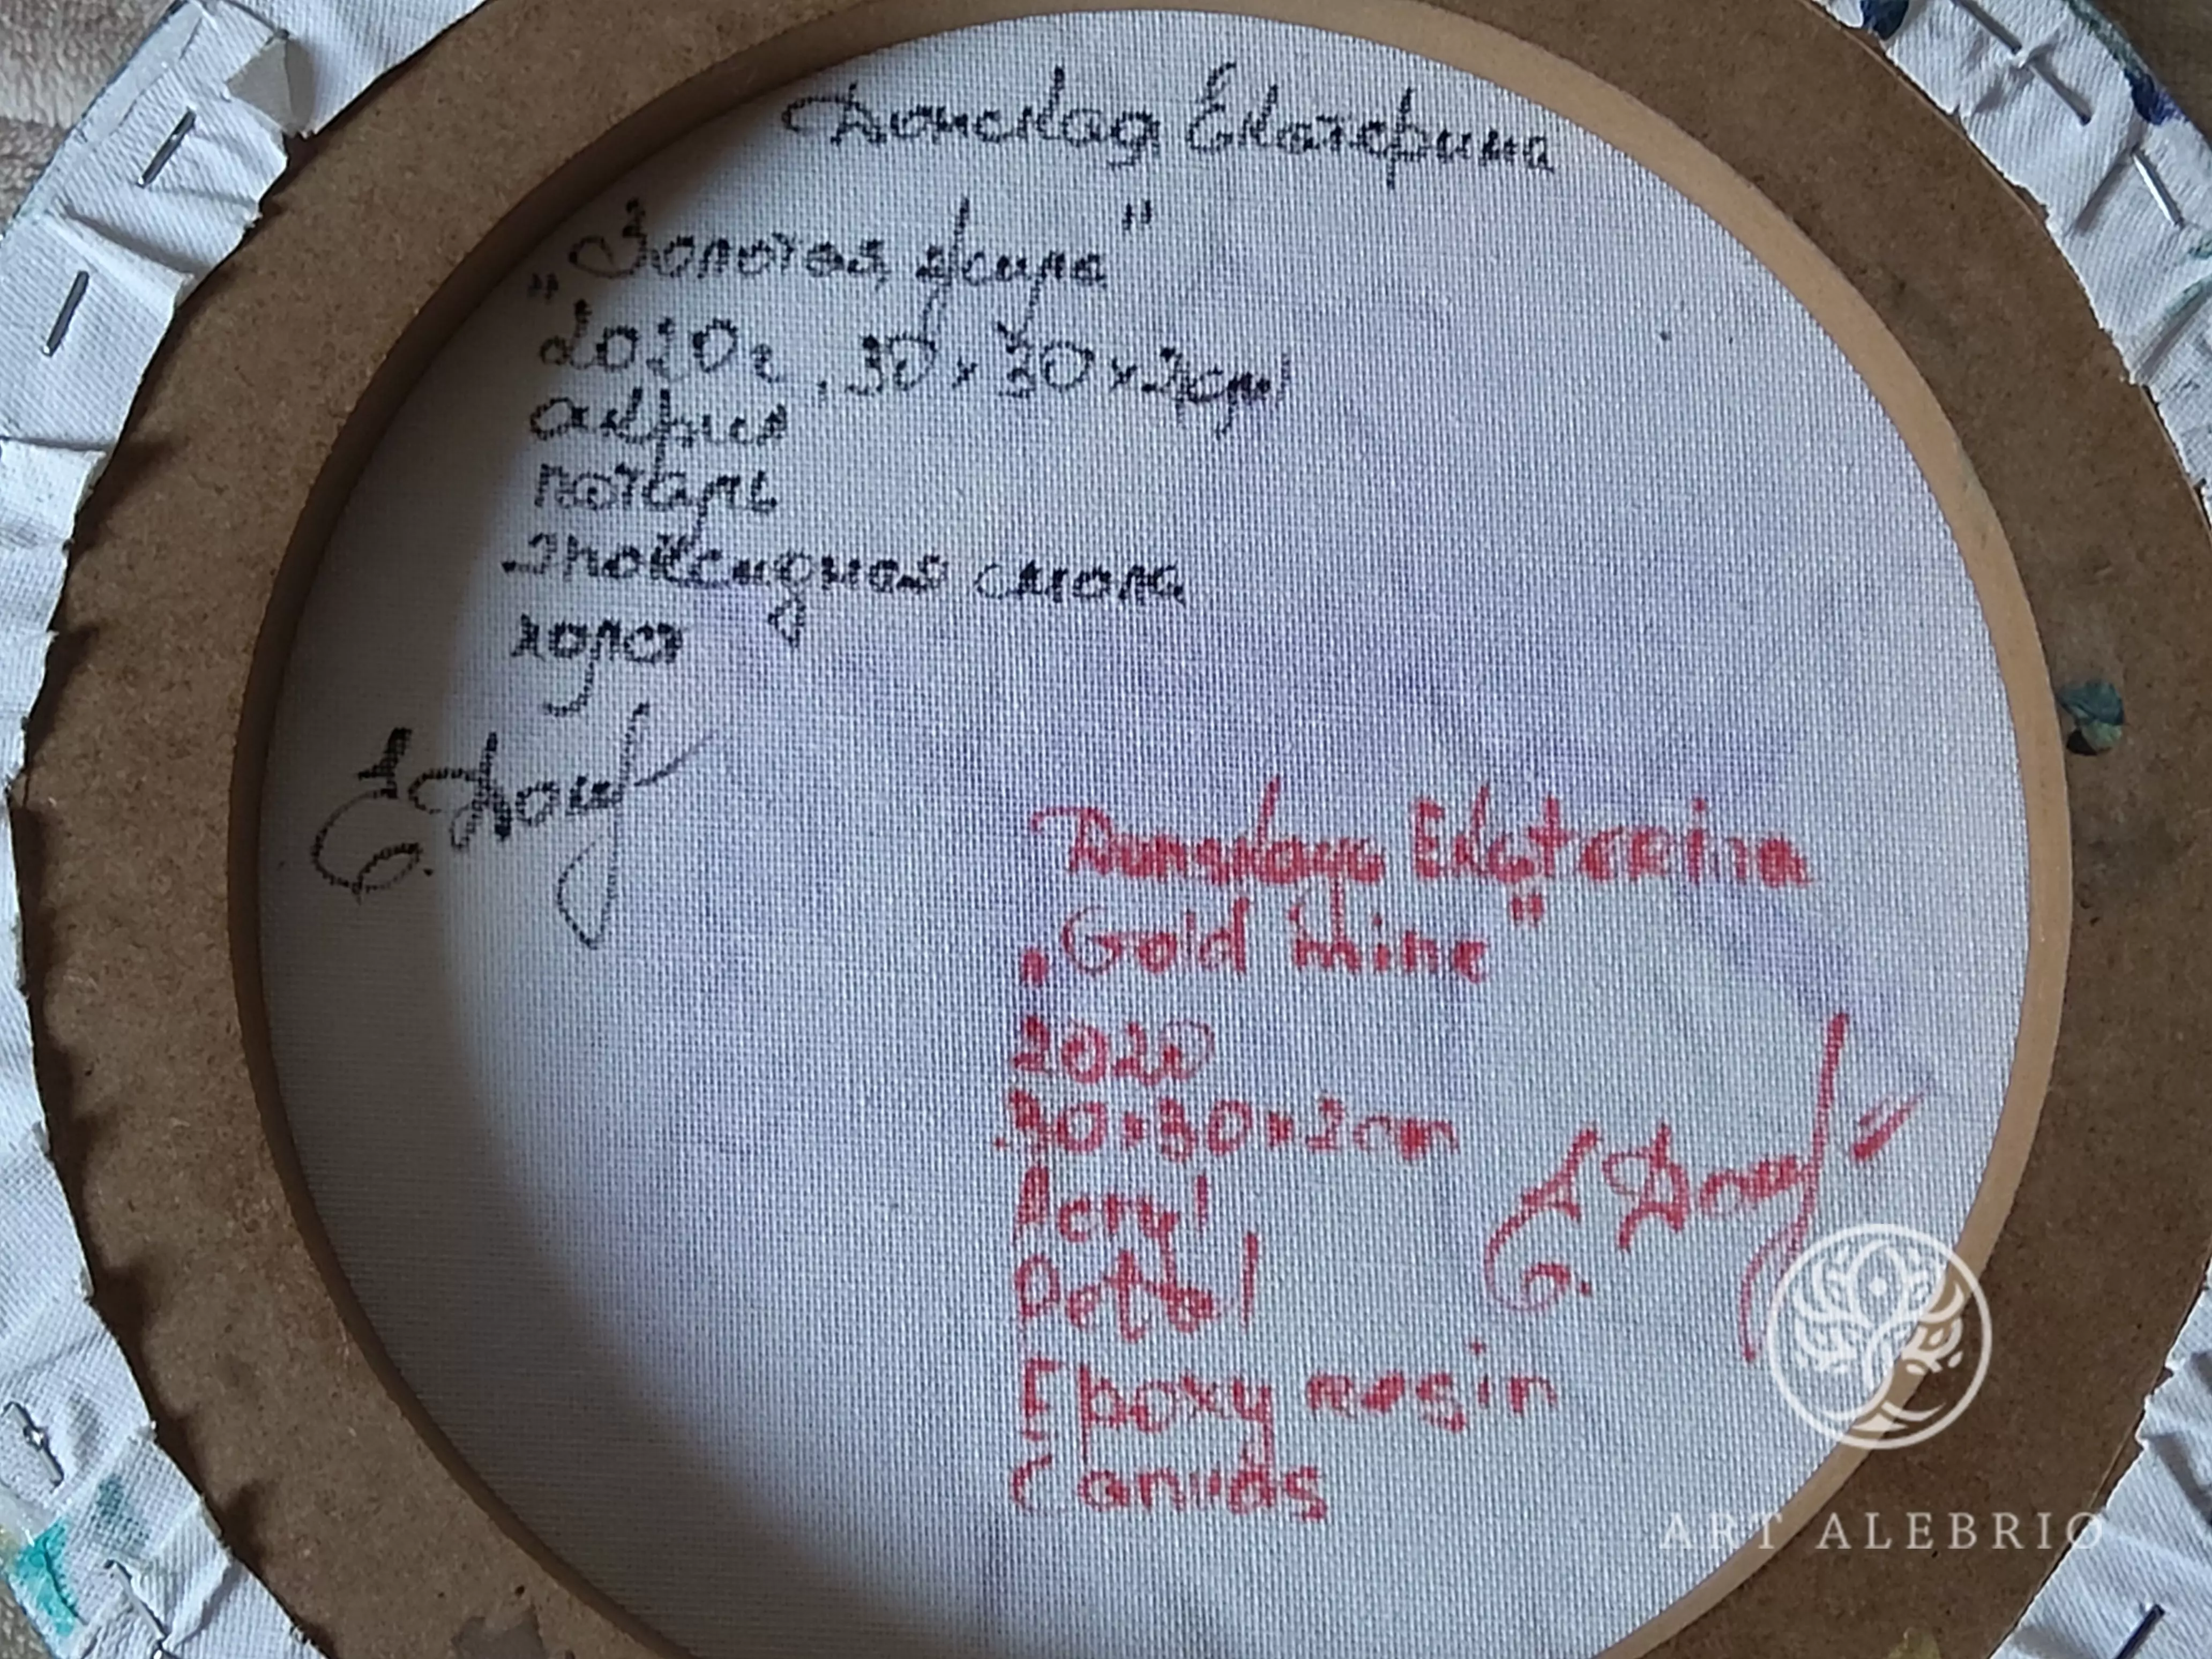 Донская Екатерина
„Золотая жила"
2020г, 30×30×2см
акрил
поталь
эпоксидная смола
холст
Donskaya Ekaterina
„Gold mine"
2020
30×30×2cm
Acryl
Petal
Epoxy resin
Canvas
ART ALEBRIO